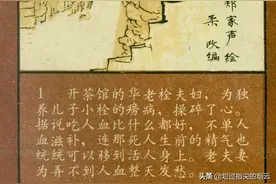 郑家声 绘
柔 改编
1 开茶馆的华老栓夫妇，为独
养儿子小栓的痨病，操碎了心。
据说吃人血比什么都好，不单人
血滋补，连那死人生前的精气也
统统可以移到活人身上。老夫妻
为弄不到人血整天发愁。
头条 @划过指尖的烟云